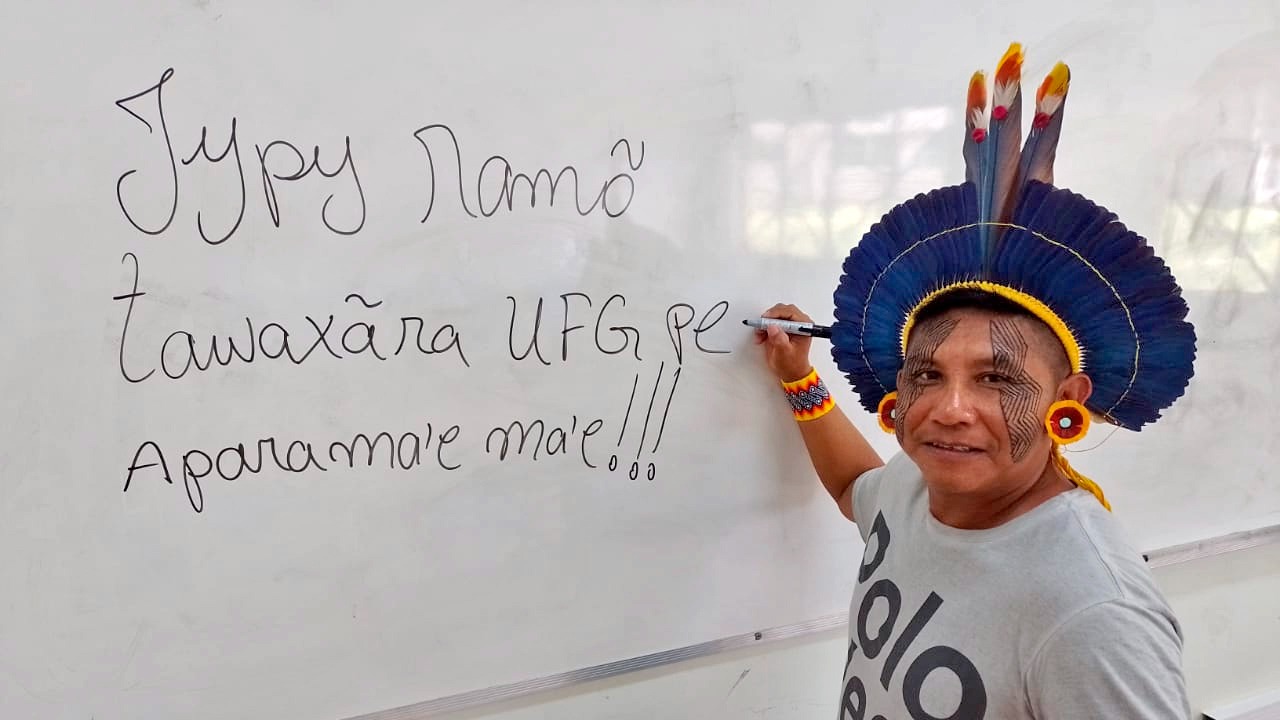 Typy Ramõ
tawaxãra UFG pe
Aparama'e ma'e!!!
polo